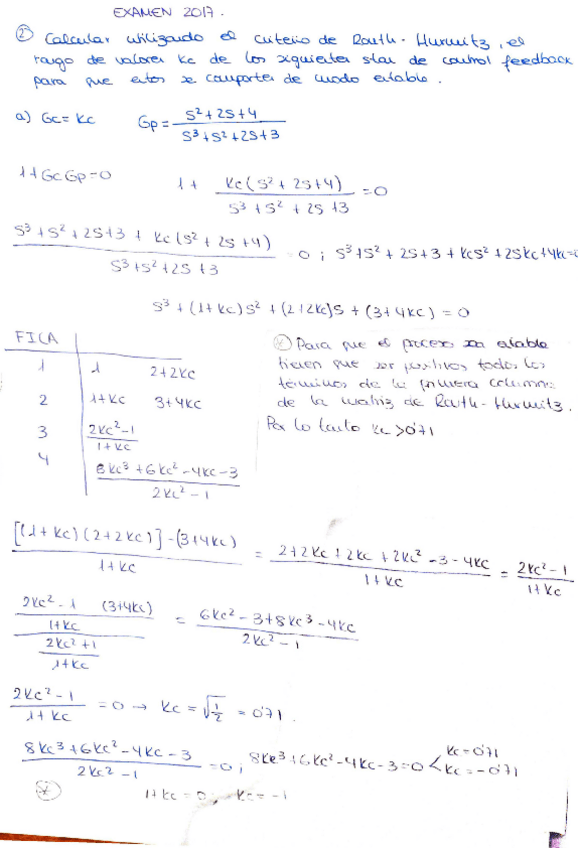 EXAMEN 2017.
② Calcular utilizando el criterio de Routh-Hurwitz, el
rango de valores Kc de los siguientes stas de control feedback
para que estos se comporten de modo estable.
a) Gc = Kc Gp = (S² + 2S + 4) / (S³ + S² + 2S + 3)
1 + Gc Gp = 0 1 + Kc(S² + 2S + 4) / (S³ + S² + 2S + 3) = 0
(S³ + S² + 2S + 3 + Kc(S² + 2S + 4)) / (S³ + S² + 2S + 3) = 0 ; S³ + S² + 2S + 3 + KcS² + 2SKc + 4Kc = 0
S³ + (1+Kc)S² + (2+2Kc)S + (3+4Kc) = 0
FICA
1 1 2+2Kc
2 1+Kc 3+4Kc
3 (2Kc²-1) / (1+Kc)
4 (8Kc³ + 6Kc² - 4Kc - 3) / (2Kc² - 1)
(*) Para que el proceso sea estable
tienen que ser positivos todos los
términos de la primera columna
de la matriz de Routh-Hurwitz.
Por lo tanto Kc > 0'71
([(1+Kc)(2+2Kc)] - (3+4Kc)) / (1+Kc) = (2+2Kc+2Kc+2Kc²-3-4Kc) / (1+Kc) = (2Kc²-1) / (1+Kc)
((2Kc²-1) / (1+Kc) (3+4Kc)) / ((2Kc²+1) / (1+Kc)) = (6Kc² - 3 + 8Kc³ - 4Kc) / (2Kc² - 1)
(2Kc²-1) / (1+Kc) = 0 → Kc = √(1/2) = 0'71.
(8Kc³ + 6Kc² - 4Kc - 3) / (2Kc² - 1) = 0 ; 8Kc³ + 6Kc² - 4Kc - 3 = 0 < Kc = 0'71
Kc = -0'71
(*) 1+Kc = 0 ; Kc = -1